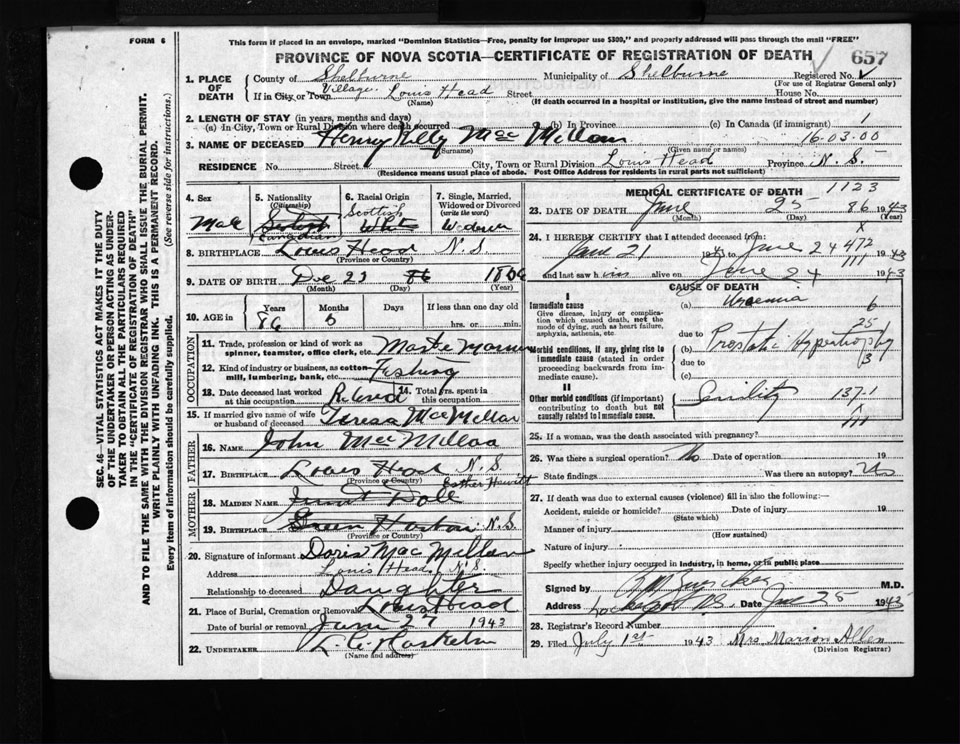 FORM 6
This form if placed in an envelope, marked "Dominion Statistics—Free, penalty for improper use $300," and properly addressed will pass through the mail "FREE"
PROVINCE OF NOVA SCOTIA—CERTIFICATE OF REGISTRATION OF DEATH
657
1. PLACE OF DEATH
County of Shelburne Municipality of Shelburne Registered No.
(For use of Registrar General only)
If in City or Town Village. Louis Head Street House No.
(Name) (If death occurred in a hospital or institution, give the name instead of street and number)
2. LENGTH OF STAY (in years, months and days)
(a) in City, Town or Rural Division where death occurred (b) In Province (c) In Canada (if immigrant) 1
3. NAME OF DECEASED Henry Mac Millan 16-03-00
(Surname) (Given name or names)
RESIDENCE No. Street City, Town or Rural Division Louis Head Province N.S.
(Residence means usual place of abode. Post Office Address for residents in rural parts not sufficient)
4. Sex
Male
5. Nationality
(Citizenship)
Canadian
6. Racial Origin
Scottish
White
7. Single, Married, Widowed or Divorced
(write the word)
Widower
8. BIRTHPLACE Louis Head N.S.
(Province or Country)
9. DATE OF BIRTH Dec 23 86 18
(Month) (Day) (Year)
10. AGE in
Years Months Days If less than one day
86 6 hrs. or min.
OCCUPATION
11. Trade, profession or kind of work as spinner, teamster, office clerk, etc. Master Mariner
12. Kind of industry or business, as cotton-mill, lumbering, bank, etc. Fishing
13. Date deceased last worked at this occupation Retired 14. Total yrs. spent in this occupation
15. If married give name of wife or husband of deceased Teresa MacMillan
FATHER
16. NAME John MacMillan
17. BIRTHPLACE Louis Head N.S.
Esther Hewitt
MOTHER
18. MAIDEN NAME
19. BIRTHPLACE Green Harbor N.S.
(Province or Country)
20. Signature of informant Doris MacMillan
Address Louis Head N.S.
Relationship to deceased Daughter
21. Place of Burial, Cremation or Removal Louis Head
Date of burial or removal June 27 1943
22. UNDERTAKER
(Name and address)
MEDICAL CERTIFICATE OF DEATH 1123
23. DATE OF DEATH June 25 86 1943
(Month) (Day) (Year)
24. I HEREBY CERTIFY that I attended deceased from: x
June 21 19 to June 24 472 1943
and last saw him alive on June 24 1943
CAUSE OF DEATH
I
Immediate cause
Give disease, injury or complication which caused death, not the mode of dying, such as heart failure, asphyxia, asthenia, etc
(a) Uraemia 6
due to 25
Morbid conditions, if any, giving rise to immediate cause (stated in order proceeding backwards from immediate cause).
(b) Prostatic Hypertrophy
due to 3
(c)
II
Other morbid conditions (if important) contributing to death but not causally related to immediate cause.
Senility 137.1
25. If a woman, was the death associated with pregnancy?
26. Was there a surgical operation? No Date of operation 19
State findings Was there an autopsy? No
27. If death was due to external causes (violence) fill in also the following:—
Accident, suicide or homicide? Date of injury 19
(State which)
Manner of injury
(How sustained)
Nature of injury
Specify whether injury occurred in industry, in home, or in public place
Signed by M.D.
Address Lockeport N.S. Date June 25 1943
28. Registrar's Record Number
29. Filed July 1st 1943 Mrs Marion Allen
(Division Registrar)
SEC. 46—VITAL STATISTICS ACT MAKES IT THE DUTY
OF THE UNDERTAKER OR PERSON ACTING AS UNDER-
TAKER TO OBTAIN ALL THE PARTICULARS REQUIRED
IN THE "CERTIFICATE OF REGISTRATION OF DEATH"
AND TO FILE THE SAME WITH THE DIVISION REGISTRAR WHO SHALL ISSUE THE BURIAL PERMIT.
WRITE PLAINLY WITH UNFADING INK. THIS IS A PERMANENT RECORD.
Every item of information should be carefully supplied. (See reverse side for instructions.)